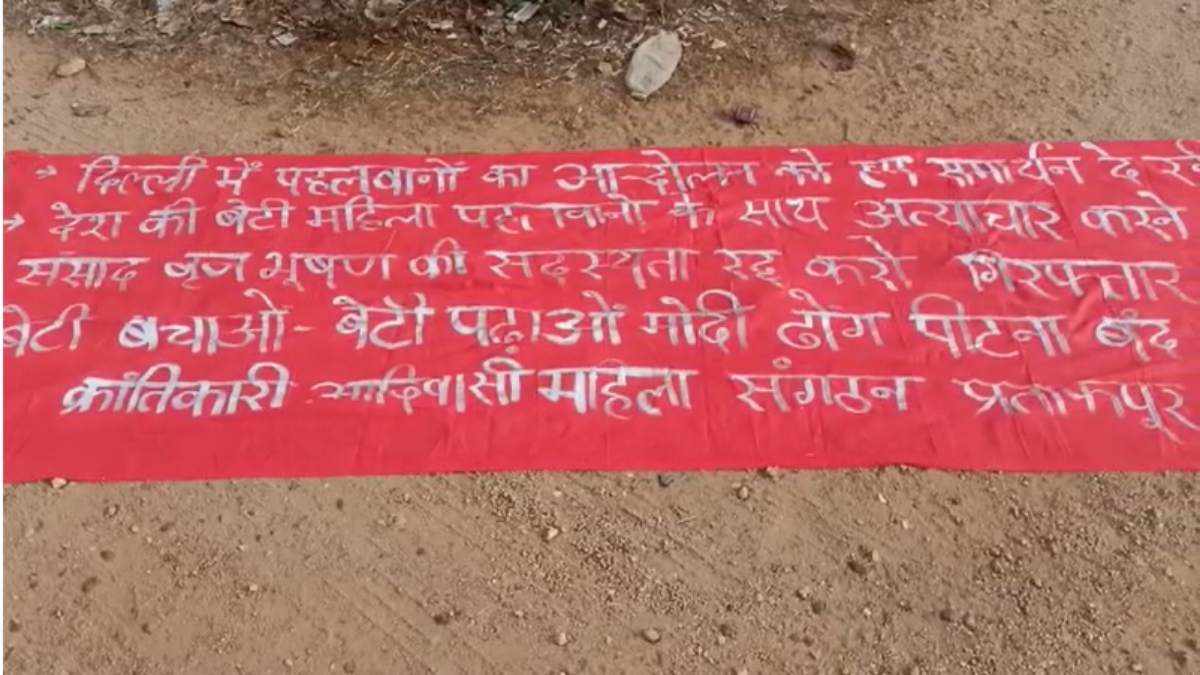 → दिल्ली में पहलवानों का आन्दोलन को हम समार्थन दे
→ देश की बेटी महिला पहलवानों के साथ अत्याचार करने
संसाद बृज भूषण की सदस्यता रद्द करो गिरफ्तार
बेटी बचाओं - बेटी पढ़ाओं मोदी ढोंग पीटना बंद
क्रांतिकारी आदिवासी महिला संगठन प्रतापपुर